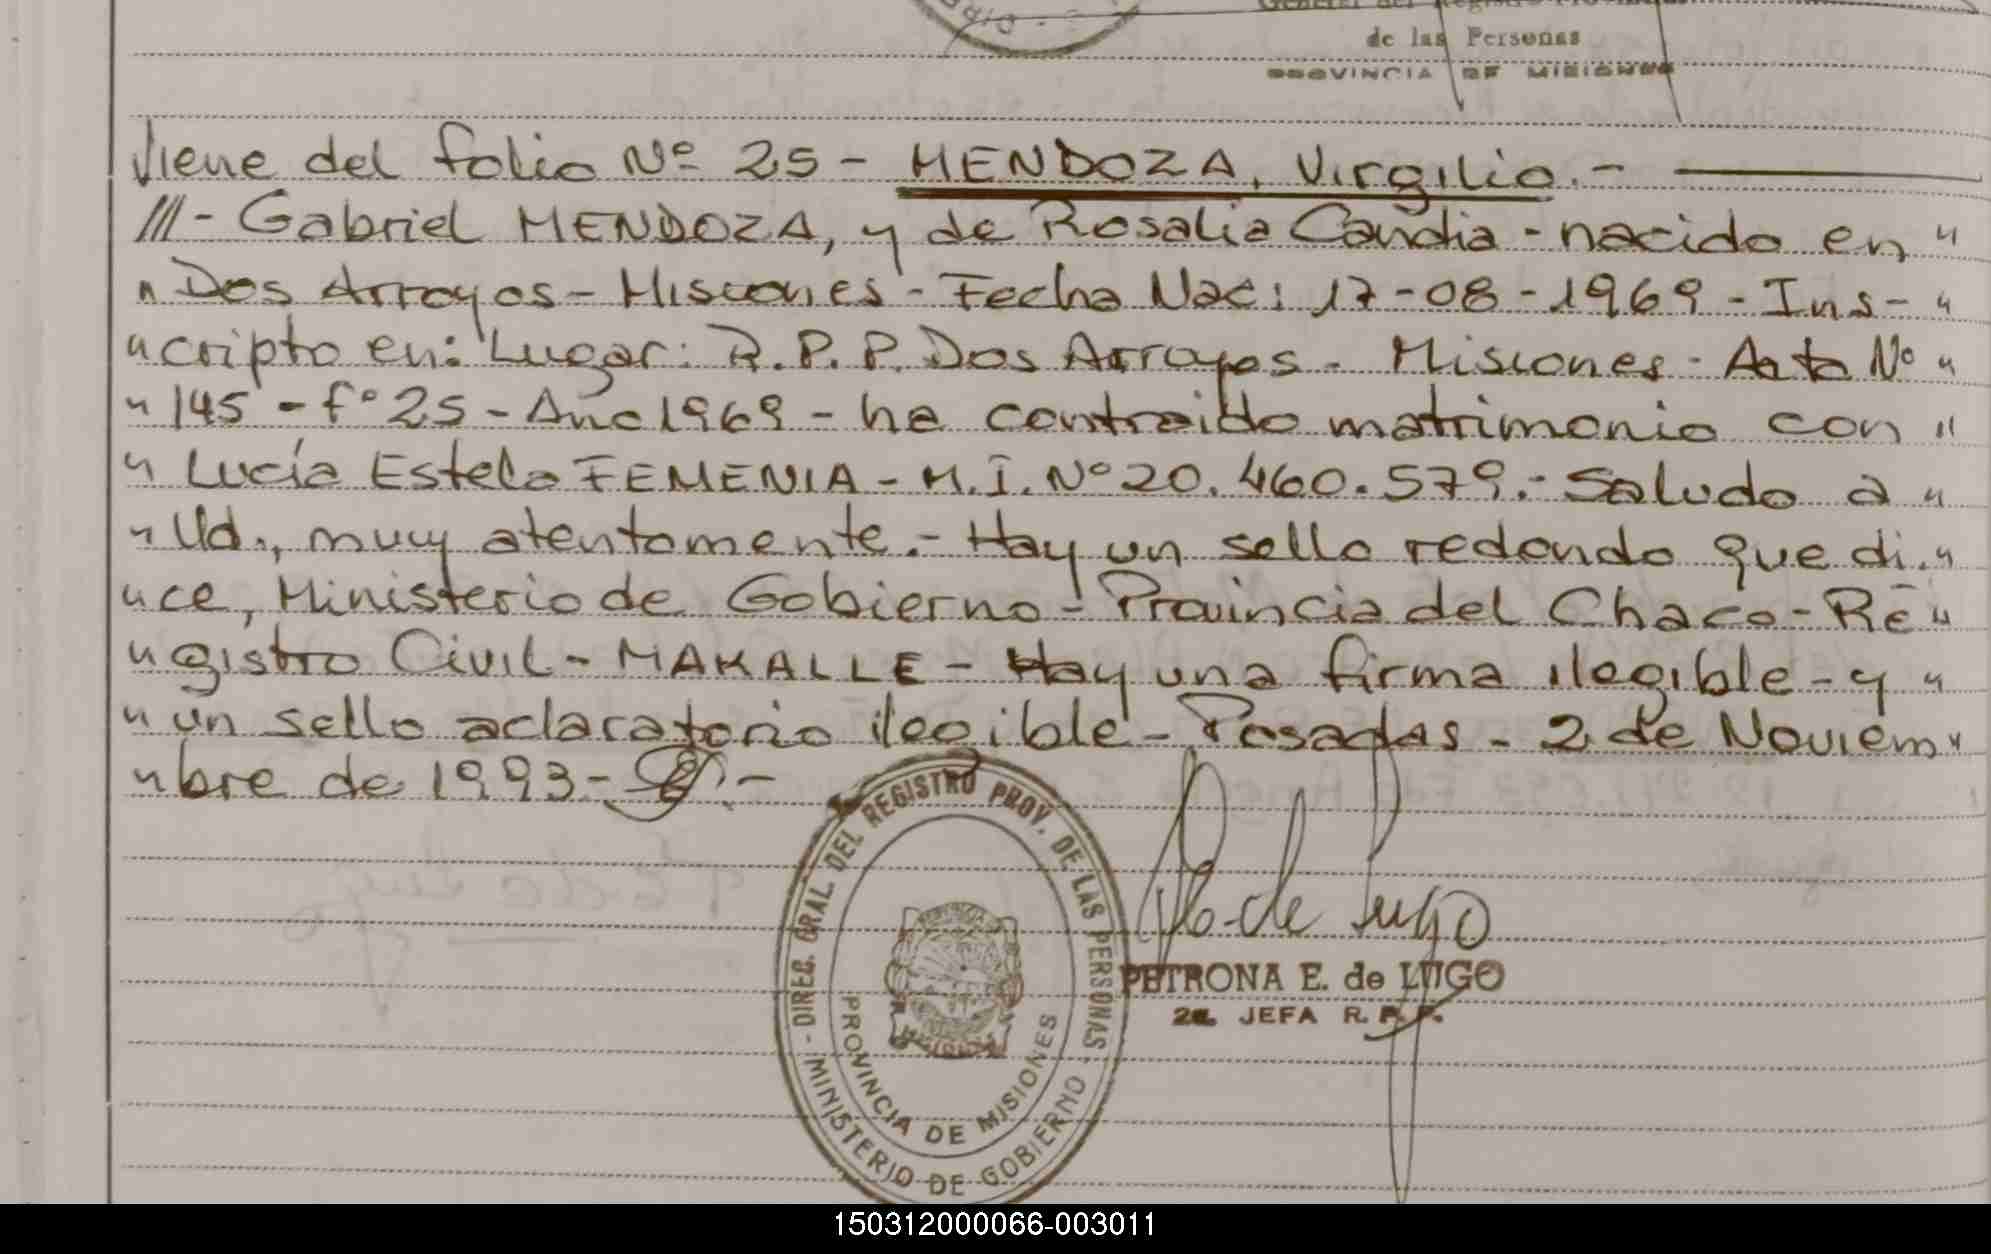 de las Personas
PROVINCIA DE MISIONES
Viene del folio Nº 25 - MENDOZA, Virgilio. -
/// - Gabriel MENDOZA, y de Rosalia Candia - nacido en "
" Dos Arroyos - Misiones - Fecha Nac: 17-08-1969 - Ins- "
" cripto en: Lugar: R.P.P. Dos Arroyos - Misiones - Acta Nº "
" 145 - fº 25 - Año 1969 - ha contraido matrimonio con "
" Lucía Estela FEMENIA - M.I. Nº 20.460.579. - Saludo a "
" Ud., muy atentamente. - Hay un sello redondo que di- "
" ce, Ministerio de Gobierno - Provincia del Chaco - Re "
" gistro Civil - MAKALLE - Hay una firma ilegible - y "
" un sello aclaratorio ilegible - Posadas - 2 de Noviem "
" bre de 1993 -
DIREC. GRAL DEL REGISTRO PROV. DE LAS PERSONAS
PROVINCIA DE MISIONES
MINISTERIO DE GOBIERNO
de Lugo
PETRONA E. de LUGO
2a. JEFA R.P.P.
150312000066-003011